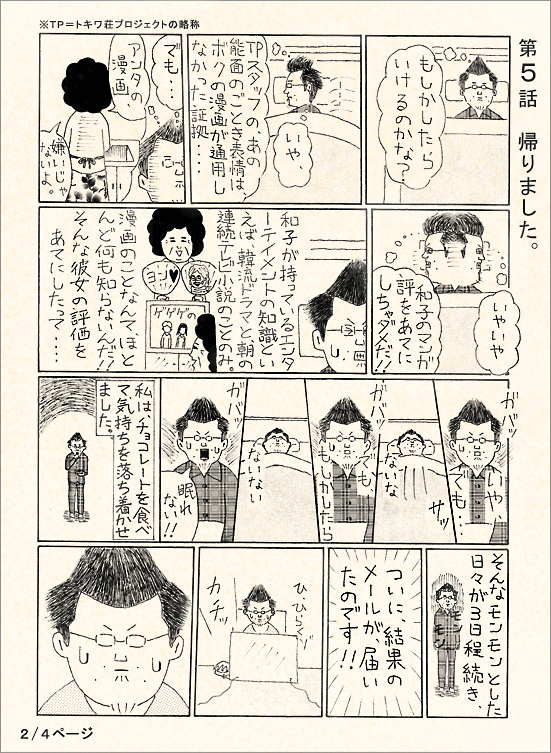 ※TP＝トキワ荘プロジェクトの略称
第5話　帰りました。
もしかしたら
いけるのかな？
いや、
TPスタッフのあの
能面のごとき表情は、
ボクの漫画が通用し
なかった証拠・・・・
でも・・・
アンタの
漫画
嫌いじゃ
ないよ。
いやいや
和子のマンガ
評をあてに
しちゃダメだ!!
和子が持っているエンタ
ーテイメントの知識とい
えば、韓流ドラマと朝の
連続テレビ小説のことのみ。
ヨン♥
ゲゲゲの
漫画のことなんて、ほと
んど何も知らないんだ!!
そんな彼女の評価を
あてにしたって・・・・
ガバッ
いや、
でも・・・
サッ
ないな
ガバッ
でも、
もしかしたら
ないない
ガバッ
眠れ
ない!!
私は、チョコレートを食べ
て気持ちを落ち着かせ
ました。
そんなモンモンとした
日々が3日程続き、
モン
モン
ついに、結果の
メールが、届い
たのです!!
ひ、ひらくゾ
カチッ
2/4ページ